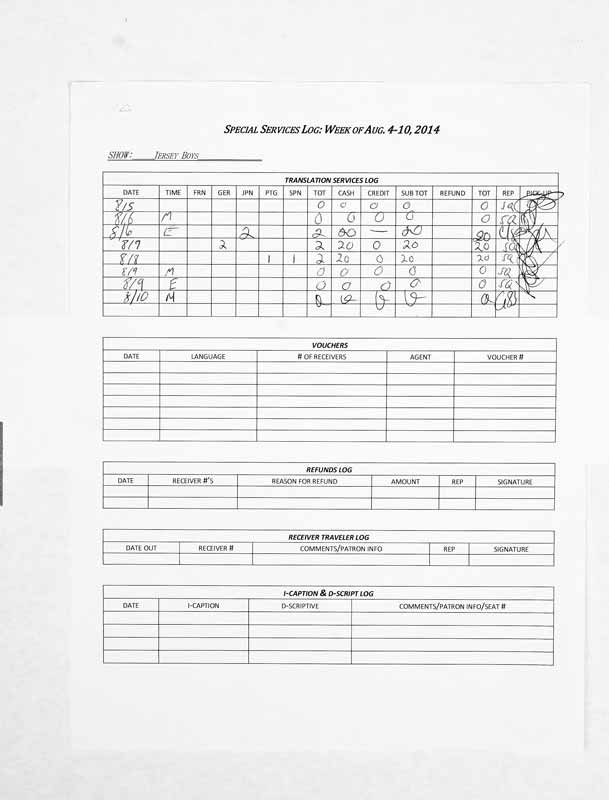 SPECIAL SERVICES LOG: WEEK OF AUG. 4-10, 2014
SHOW: JERSEY BOYS
TRANSLATION SERVICES LOG
DATE TIME FRN GER JPN PTG SPN TOT CASH CREDIT SUB TOT REFUND TOT REP PICK-UP
8/5 0 0 0 0 0 SQ
8/6 M 0 0 0 0 0 SQ
8/6 E 2 2 20 — 20 20
8/7 2 2 20 0 20 20 SQ
8/8 1 1 2 20 0 20 20 SQ
8/9 M 0 0 0 0 0 SQ
8/9 E 0 0 0 0 0 SQ
8/10 M 0 0 0 0 0
VOUCHERS
DATE LANGUAGE # OF RECEIVERS AGENT VOUCHER #
REFUNDS LOG
DATE RECEIVER #'S REASON FOR REFUND AMOUNT REP SIGNATURE
RECEIVER TRAVELER LOG
DATE OUT RECEIVER # COMMENTS/PATRON INFO REP SIGNATURE
I-CAPTION & D-SCRIPT LOG
DATE I-CAPTION D-SCRIPTIVE COMMENTS/PATRON INFO/SEAT #